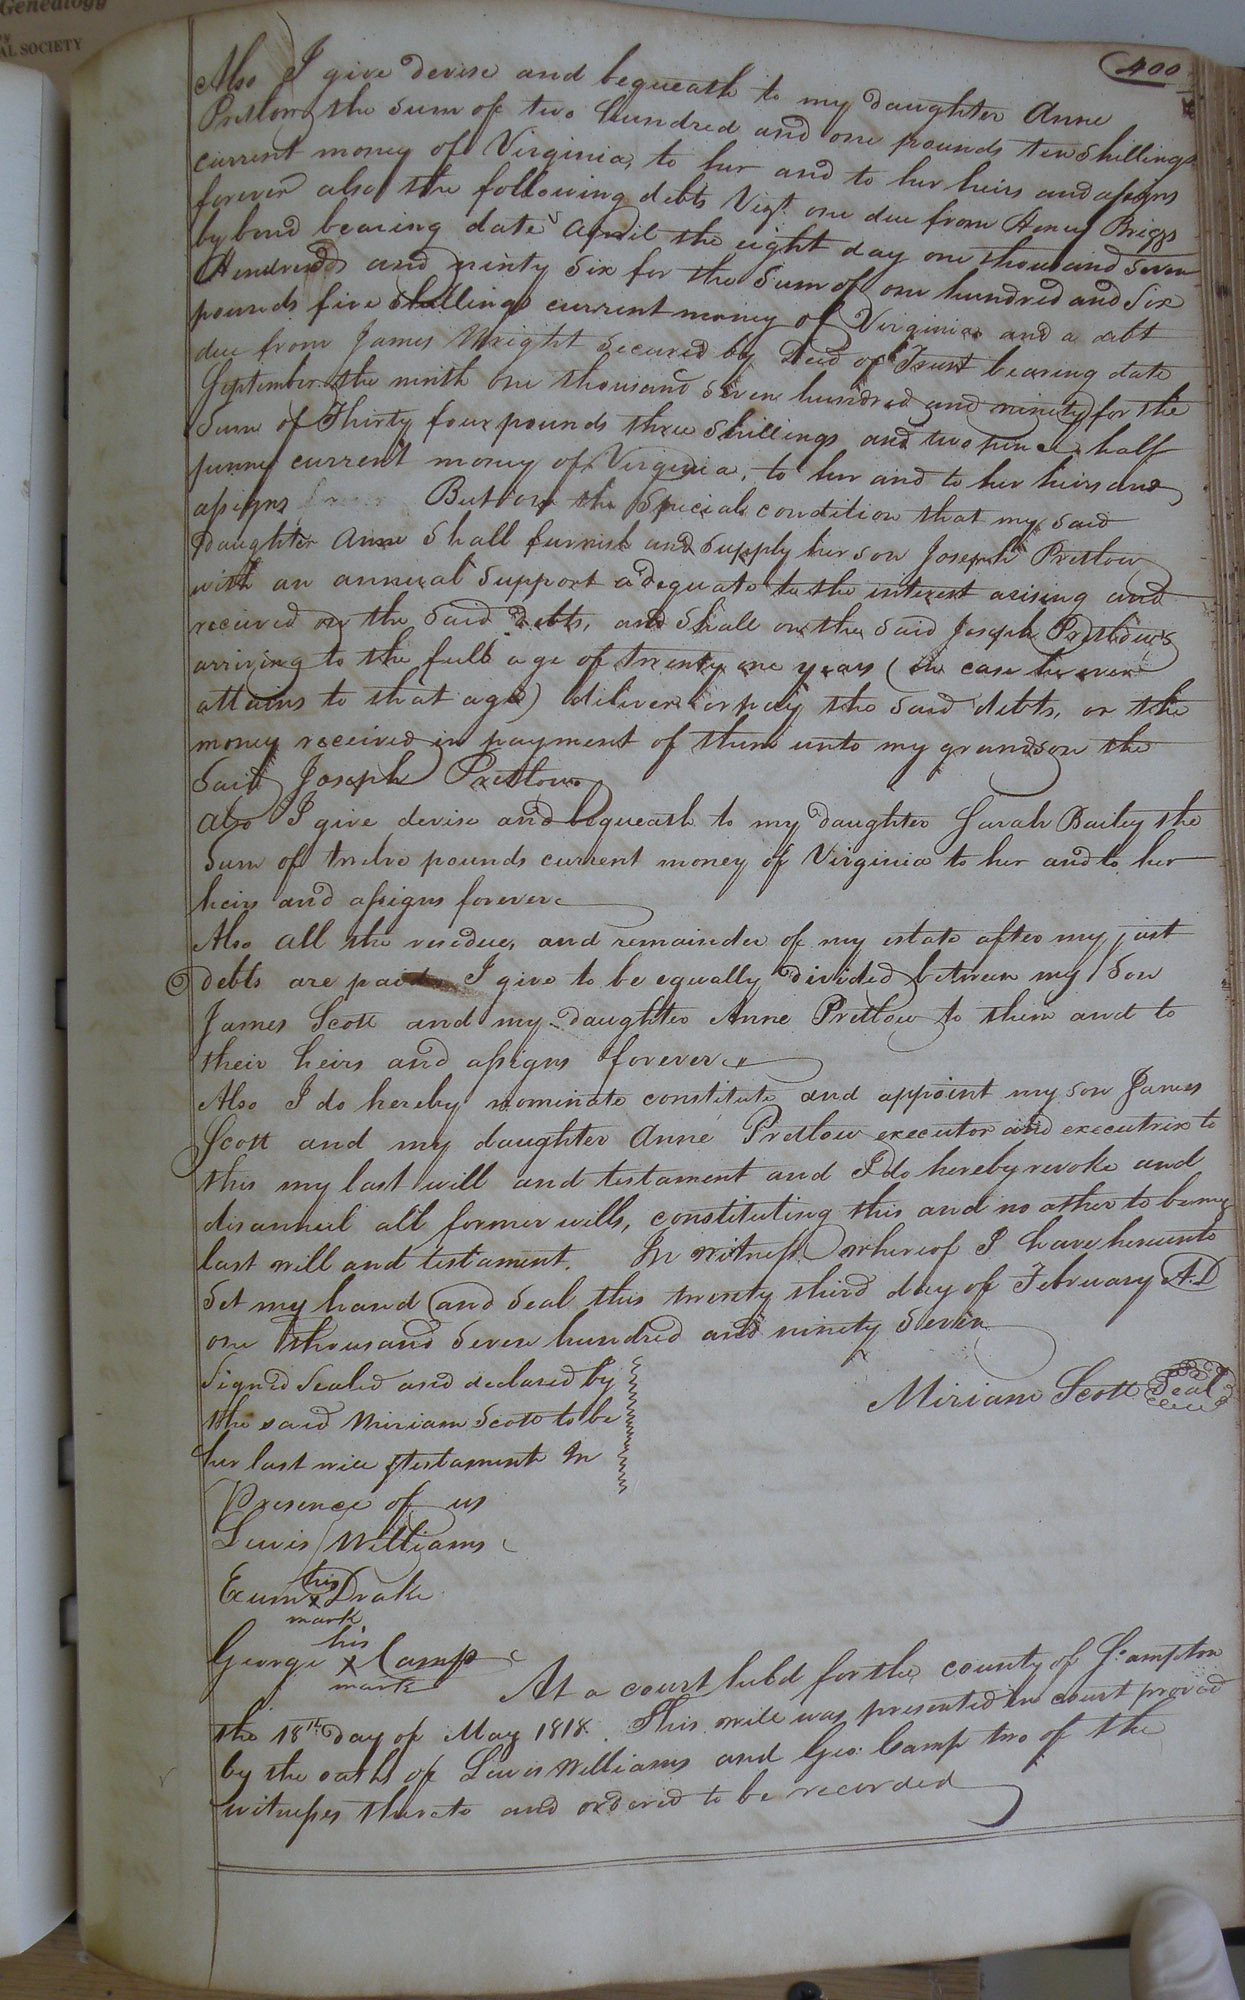 Genealogy
AL SOCIETY
400
Also I give devise and bequeath to my daughter Anne
Pretlow the Sum of two hundred and one pounds ten Shillings
current money of Virginia, to her and to her heirs and assigns
forever also the following debts Vizt. one due from Henry Briggs
by bond bearing date April the eight day one thousand Seven
Hendred and ninty Six for the Sum of one hundred and Six
pounds five Shillings current money of Virginia and a debt
due from James Wright Secured by Deed of Trust bearing date
September the ninth one thousand Seven hundred and ninety for the
Sum of Thirty four pounds three Shillings and two pence half
penny current money of Virginia, to her and to her heirs and
assigns But on the Special condition that my Said
Daughter Anne Shall furnish and Supply her son Joseph Pretlow
with an annual Support adequate to the interest arising and
received on the Said Debts, and Shall on the Said Joseph Pretlow's
arriving to the full age of twenty one years (in case he ever
attains to that age) deliver or pay the Said debts, or the
money received in payment of them unto my grandson the
Said Joseph Pretlow
Also I give devise and bequeath to my daughter Sarah Bailey the
Sum of twelve pounds current money of Virginia to her and to her
heirs and assigns forever
Also all the residue, and remainder of my estate after my just
debts are paid I give to be equally divided between my Son
James Scott and my daughter Anne Pretlow to them and to
their heirs and assigns forever
Also I do hereby nominate constitute and appoint my son James
Scott and my daughter Anne Pretlow executor and executrix to
this my last will and testament and I do hereby revoke and
disannul all former wills, constituting this and no other to be my
last will and testament. In witness whereof I have hereunto
Set my hand and Seal this twenty third day of February A.D
one thousand Seven hundred and ninety Seven
Miriam Scott Seal
Signed Sealed and declared by
the said Miriam Scott to be
her last will & testament In
Presence of us
Lewis Williams
his
Exum x Drake
mark
his
George x Camp
mark
At a court held for the county of So.ampton
the 18th day of May 1818. This will was presented in court proved
by the oaths of Lewis Williams and Geo: Camp two of the
witnesses thereto and ordered to be recorded